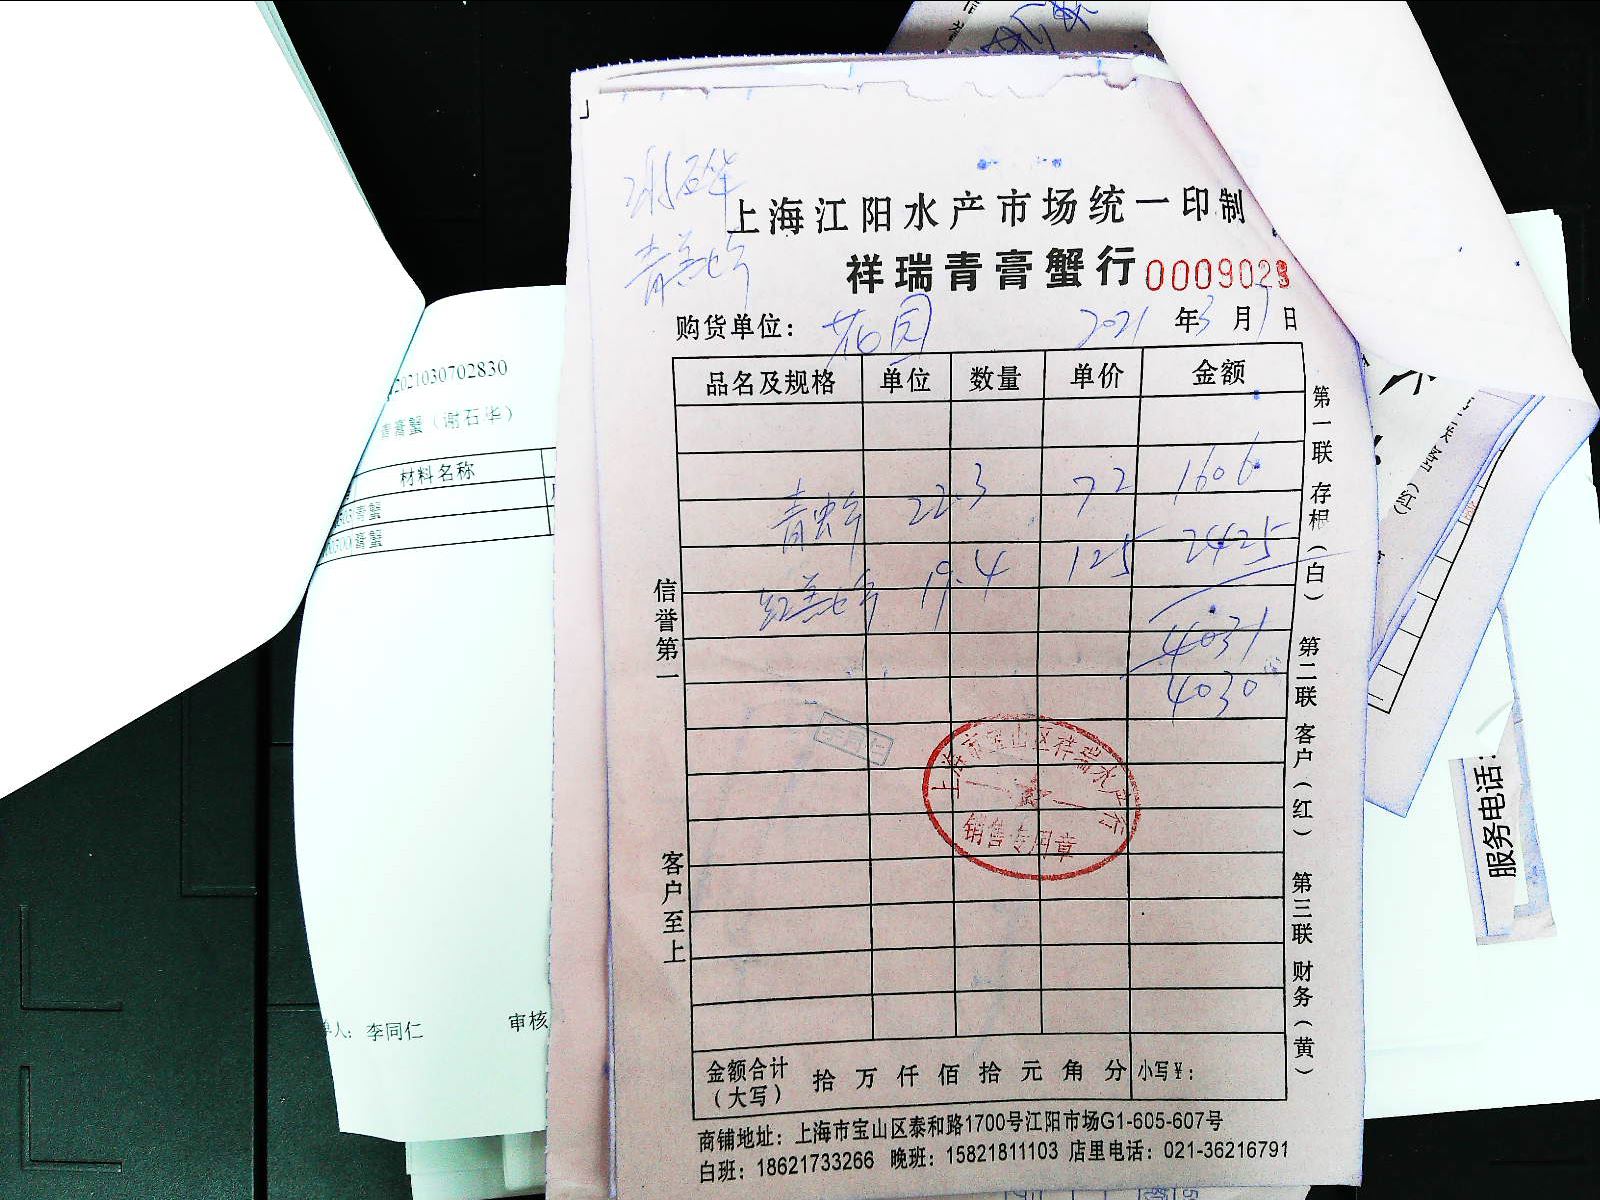 谢石华
青羔蟹
上海江阳水产市场统一印制
祥瑞青膏蟹行 0009028
购货单位： 花园 2021年3月7日
品名及规格 单位 数量 单价 金额
青蟹 22.3 72 1606
红羔蟹 19.4 125 2425
4031
4030
信誉第一
客户至上
第一联 存根（白）
第二联 客户（红）
第三联 财务（黄）
上海市宝山区祥瑞水产行
销售专用章
金额合计（大写） 拾 万 仟 佰 拾 元 角 分 小写¥：
商铺地址：上海市宝山区泰和路1700号江阳市场G1-605-607号
白班：18621733266 晚班：15821811103 店里电话：021-36216791
2021030702830
青膏蟹（谢石华）
材料名称
青蟹
膏蟹
人：李同仁
审核
服务电话：